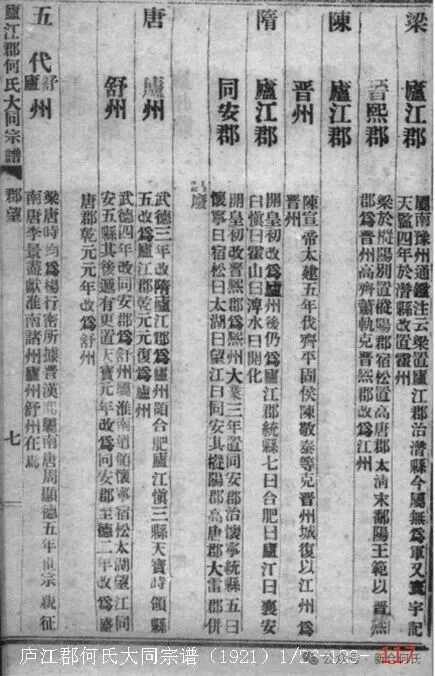 梁 廬江郡
屬南豫州通鑑注云梁置廬江郡治潛縣今屬無為軍又寰宇記
天監四年於潛縣改置霍州
晉熙郡
梁於樅陽別置樅陽郡宿松置高唐郡太清末鄱陽王範以晉熙
郡為晉州高齊蕭軌克晉熙郡改為江州
陳 廬江郡
晉州
陳宣帝太建五年伐齊平固侯陳敬泰等克晉州城復以江州為
晉州
隋 廬江郡
開皇初改為廬州後仍為廬江郡統縣七曰合肥曰廬江曰襄安
曰慎曰霍山曰淠水曰開化
同安郡
開皇初改晉熙郡為熙州大業三年置同安郡治懷寧統縣五曰
懷寧曰宿松曰太湖曰望江曰同安其樅陽郡高唐郡大雷郡併
廢
唐 廬州
武德三年改隋廬江郡為廬州領合肥廬江慎三縣天寶時領縣
五改為廬江郡乾元元復為廬州
舒州
武德四年改同安郡為舒州屬淮南道領懷寧宿松太湖望江同
安五縣其後遞有更置天寶元年改為同安郡至德二年改為盛
唐郡乾元元年改為舒州
五代 舒廬州
梁唐時均為楊行密所據晉漢間屬南唐周顯德五年世宗親征
南唐李景盡獻淮南諸州廬州舒州在焉
廬江郡何氏大同宗譜 郡望 七
庐江郡何氏大同宗谱（1921）1/26-129-
117